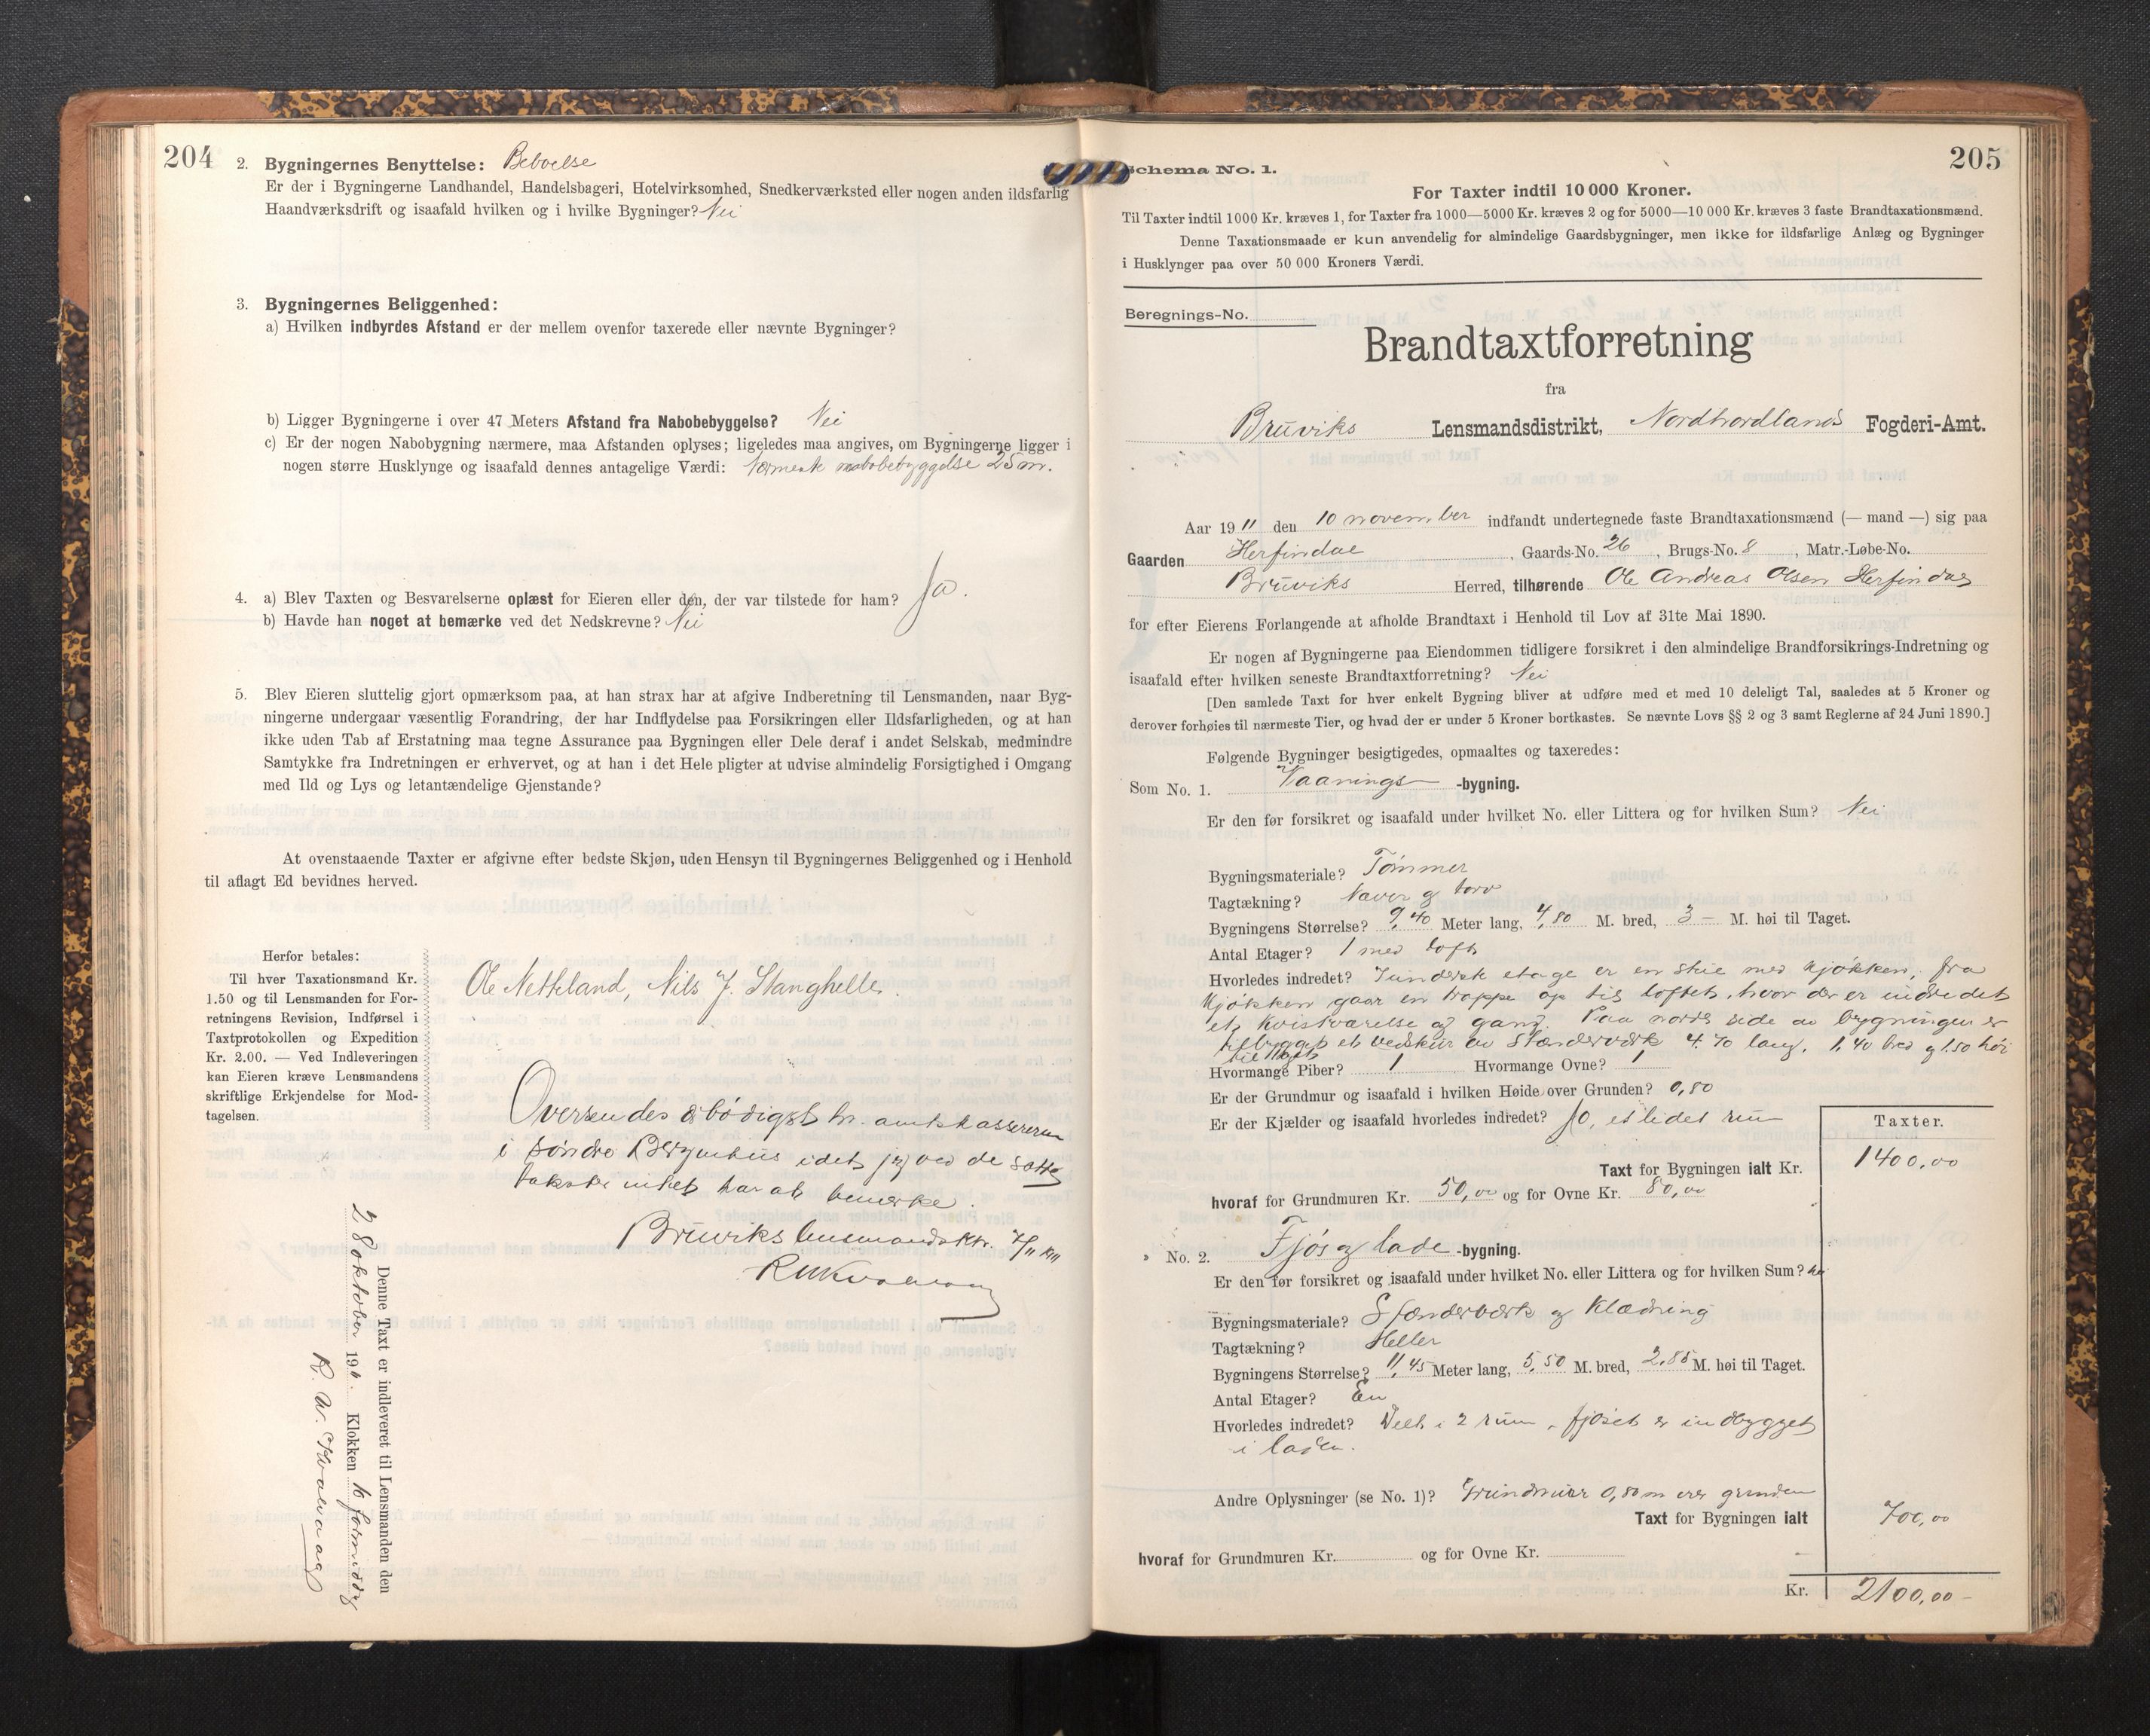 204
2. Bygningernes Benyttelse: Beboelse
Er der i Bygningerne Landhandel, Handelsbageri, Hotelvirksomhed, Snedkerværksted eller nogen anden ildsfarlig
Haandværksdrift og isaafald hvilken og i hvilke Bygninger? Nei
3. Bygningernes Beliggenhed:
a) Hvilken indbyrdes Afstand er der mellem ovenfor taxerede eller nævnte Bygninger?
b) Ligger Bygningerne i over 47 Meters Afstand fra Nabobebyggelse? Nei
c) Er der nogen Nabobygning nærmere, maa Afstanden oplyses; ligeledes maa angives, om Bygningerne ligger i
nogen større Husklynge og isaafald dennes antagelige Værdi: Nærmeste nabobebyggelse 25 m.
4. a) Blev Taxten og Besvarelserne oplæst for Eieren eller den, der var tilstede for ham? Ja.
b) Havde han noget at bemærke ved det Nedskrevne? Nei
5. Blev Eieren sluttelig gjort opmærksom paa, at han strax har at afgive Indberetning til Lensmanden, naar Byg-
ningerne undergaar væsentlig Forandring, der har Indflydelse paa Forsikringen eller Ildsfarligheden, og at han
ikke uden Tab af Erstatning maa tegne Assurance paa Bygningen eller Dele deraf i andet Selskab, medmindre
Samtykke fra Indretningen er erhvervet, og at han i det Hele pligter at udvise almindelig Forsigtighed i Omgang
med Ild og Lys og letantændelige Gjenstande?
At ovenstaaende Taxter er afgivne efter bedste Skjøn, uden Hensyn til Bygningernes Beliggenhed og i Henhold
til aflagt Ed bevidnes herved.
Herfor betales:
Til hver Taxationsmand Kr.
1.50 og til Lensmanden for For-
retningens Revision, Indførsel i
Taxtprotokollen og Expedition
Kr. 2.00. — Ved Indleveringen
kan Eieren kræve Lensmandens
skriftlige Erkjendelse for Mod-
tagelsen.
Ole Netteland, Nils J. Stanghelle
Oversendes ærbødigst hr. amtskassereren
i søndre Bergenhus idet jeg ved de satte
takster intet har at bemerke.
Bruviks lensmandsktr. 7/11 1911
Denne Taxt er indleveret til Lensmanden den
28 oktober 1911. Klokken 10 formiddag
205
Schema No. 1.
For Taxter indtil 10 000 Kroner.
Til Taxter indtil 1000 Kr. kræves 1, for Taxter fra 1000—5000 Kr. kræves 2 og for 5000—10 000 Kr. kræves 3 faste Brandtaxationsmænd.
Denne Taxationsmaade er kun anvendelig for almindelige Gaardsbygninger, men ikke for ildsfarlige Anlæg og Bygninger
i Husklynger paa over 50 000 Kroners Værdi.
Beregnings-No.
Brandtaxtforretning
fra
Bruviks Lensmandsdistrikt, Nordhordlands Fogderi-Amt.
Aar 1911 den 10 november indfandt undertegnede faste Brandtaxationsmænd (— mand —) sig paa
Gaarden Herfindal, Gaards-No. 26, Brugs-No. 8, Matr.-Løbe-No.
Bruviks Herred, tilhørende Ole Andreas Olsen Herfindal
for efter Eierens Forlangende at afholde Brandtaxt i Henhold til Lov af 31te Mai 1890.
Er nogen af Bygningerne paa Eiendommen tidligere forsikret i den almindelige Brandforsikrings-Indretning og
isaafald efter hvilken seneste Brandtaxtforretning? Nei
[Den samlede Taxt for hver enkelt Bygning bliver at udføre med et med 10 deleligt Tal, saaledes at 5 Kroner og
derover forhøies til nærmeste Tier, og hvad der er under 5 Kroner bortkastes. Se nævnte Lovs §§ 2 og 3 samt Reglerne af 24 Juni 1890.]
Følgende Bygninger besigtigedes, opmaaltes og taxeredes:
Som No. 1. Vaanings-bygning.
Er den før forsikret og isaafald under hvilket No. eller Littera og for hvilken Sum? Nei
Bygningsmateriale? Tømmer
Tagtækning? Næver og torv
Bygningens Størrelse? 9,40 Meter lang, 4,80 M. bred, 3 — M. høi til Taget.
Antal Etager? 1 med loft
Hvorledes indredet? I underste etage er en stue med kjøkken, fra
kjøkken gaar en trappe op til loftet, hvor der er indredet
et kvistværelse og gang. Paa nordre side av bygningen er
tilbygget et vedskur av stænderverk 4.70 lang, 1,40 bred og 1.50 høi
til taget
Hvormange Piber? 1 Hvormange Ovne? 1
Er der Grundmur og isaafald i hvilken Høide over Grunden? 0,80
Er der Kjælder og isaafald hvorledes indredet? Jo, et lidet rum
Taxter.
Taxt for Bygningen ialt Kr. 1400,00
hvoraf for Grundmuren Kr. 50,00 og for Ovne Kr. 80,00
No. 2. Fjøs og lade-bygning.
Er den før forsikret og isaafald under hvilket No. eller Littera og for hvilken Sum?
Bygningsmateriale? Stænderverk og klædning
Tagtækning? Heller
Bygningens Størrelse? 11,45 Meter lang, 5,50 M. bred, 2,85 M. høi til Taget.
Antal Etager? En
Hvorledes indredet? Delt i 2 rum, fjøset er indbygget
i laden.
Andre Oplysninger (se No. 1)? Grundmur 0,80 m over grunden
Taxt for Bygningen ialt 700,00
hvoraf for Grundmuren Kr. og for Ovne Kr. —
Kr. 2100,00 —